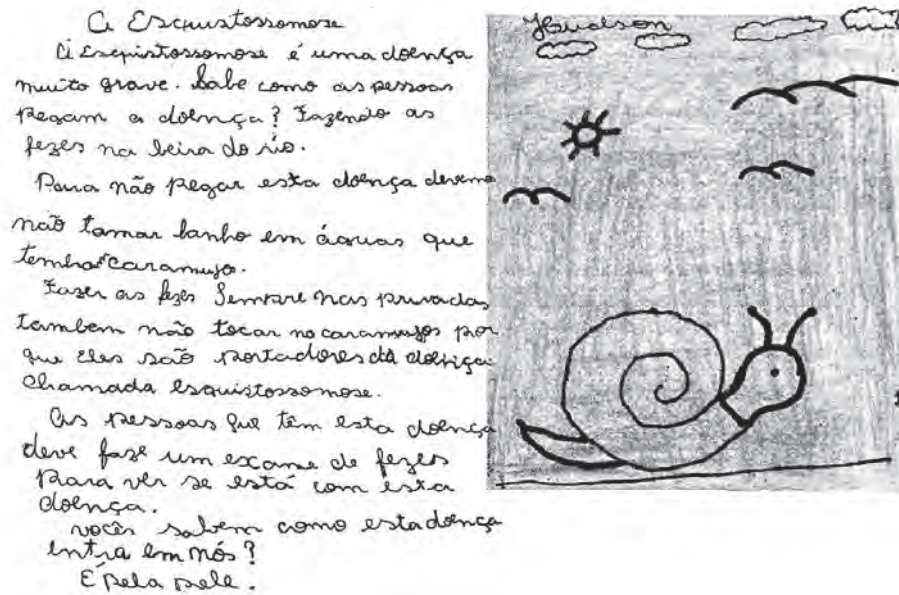 A Esquistossomose
A Esquistossomose é uma doença
muito grave. Sabe como as pessoas
pegam a doença? Fazendo as
fezes na beira do rio.
Para não pegar esta doença devemo
não tomar banho em águas que
tenha caramujo.
Fazer as fezes Sempre nas privadas
tambem não tocar no caramujos por
que eles são portadores da doença
chamada esquistossomose.
As pessoas que têm esta doença
deve faze um exame de fezes
para ver se está com esta
doença.
vocês sabem como esta doença
entra em nós?
É pela pele.
Hudson